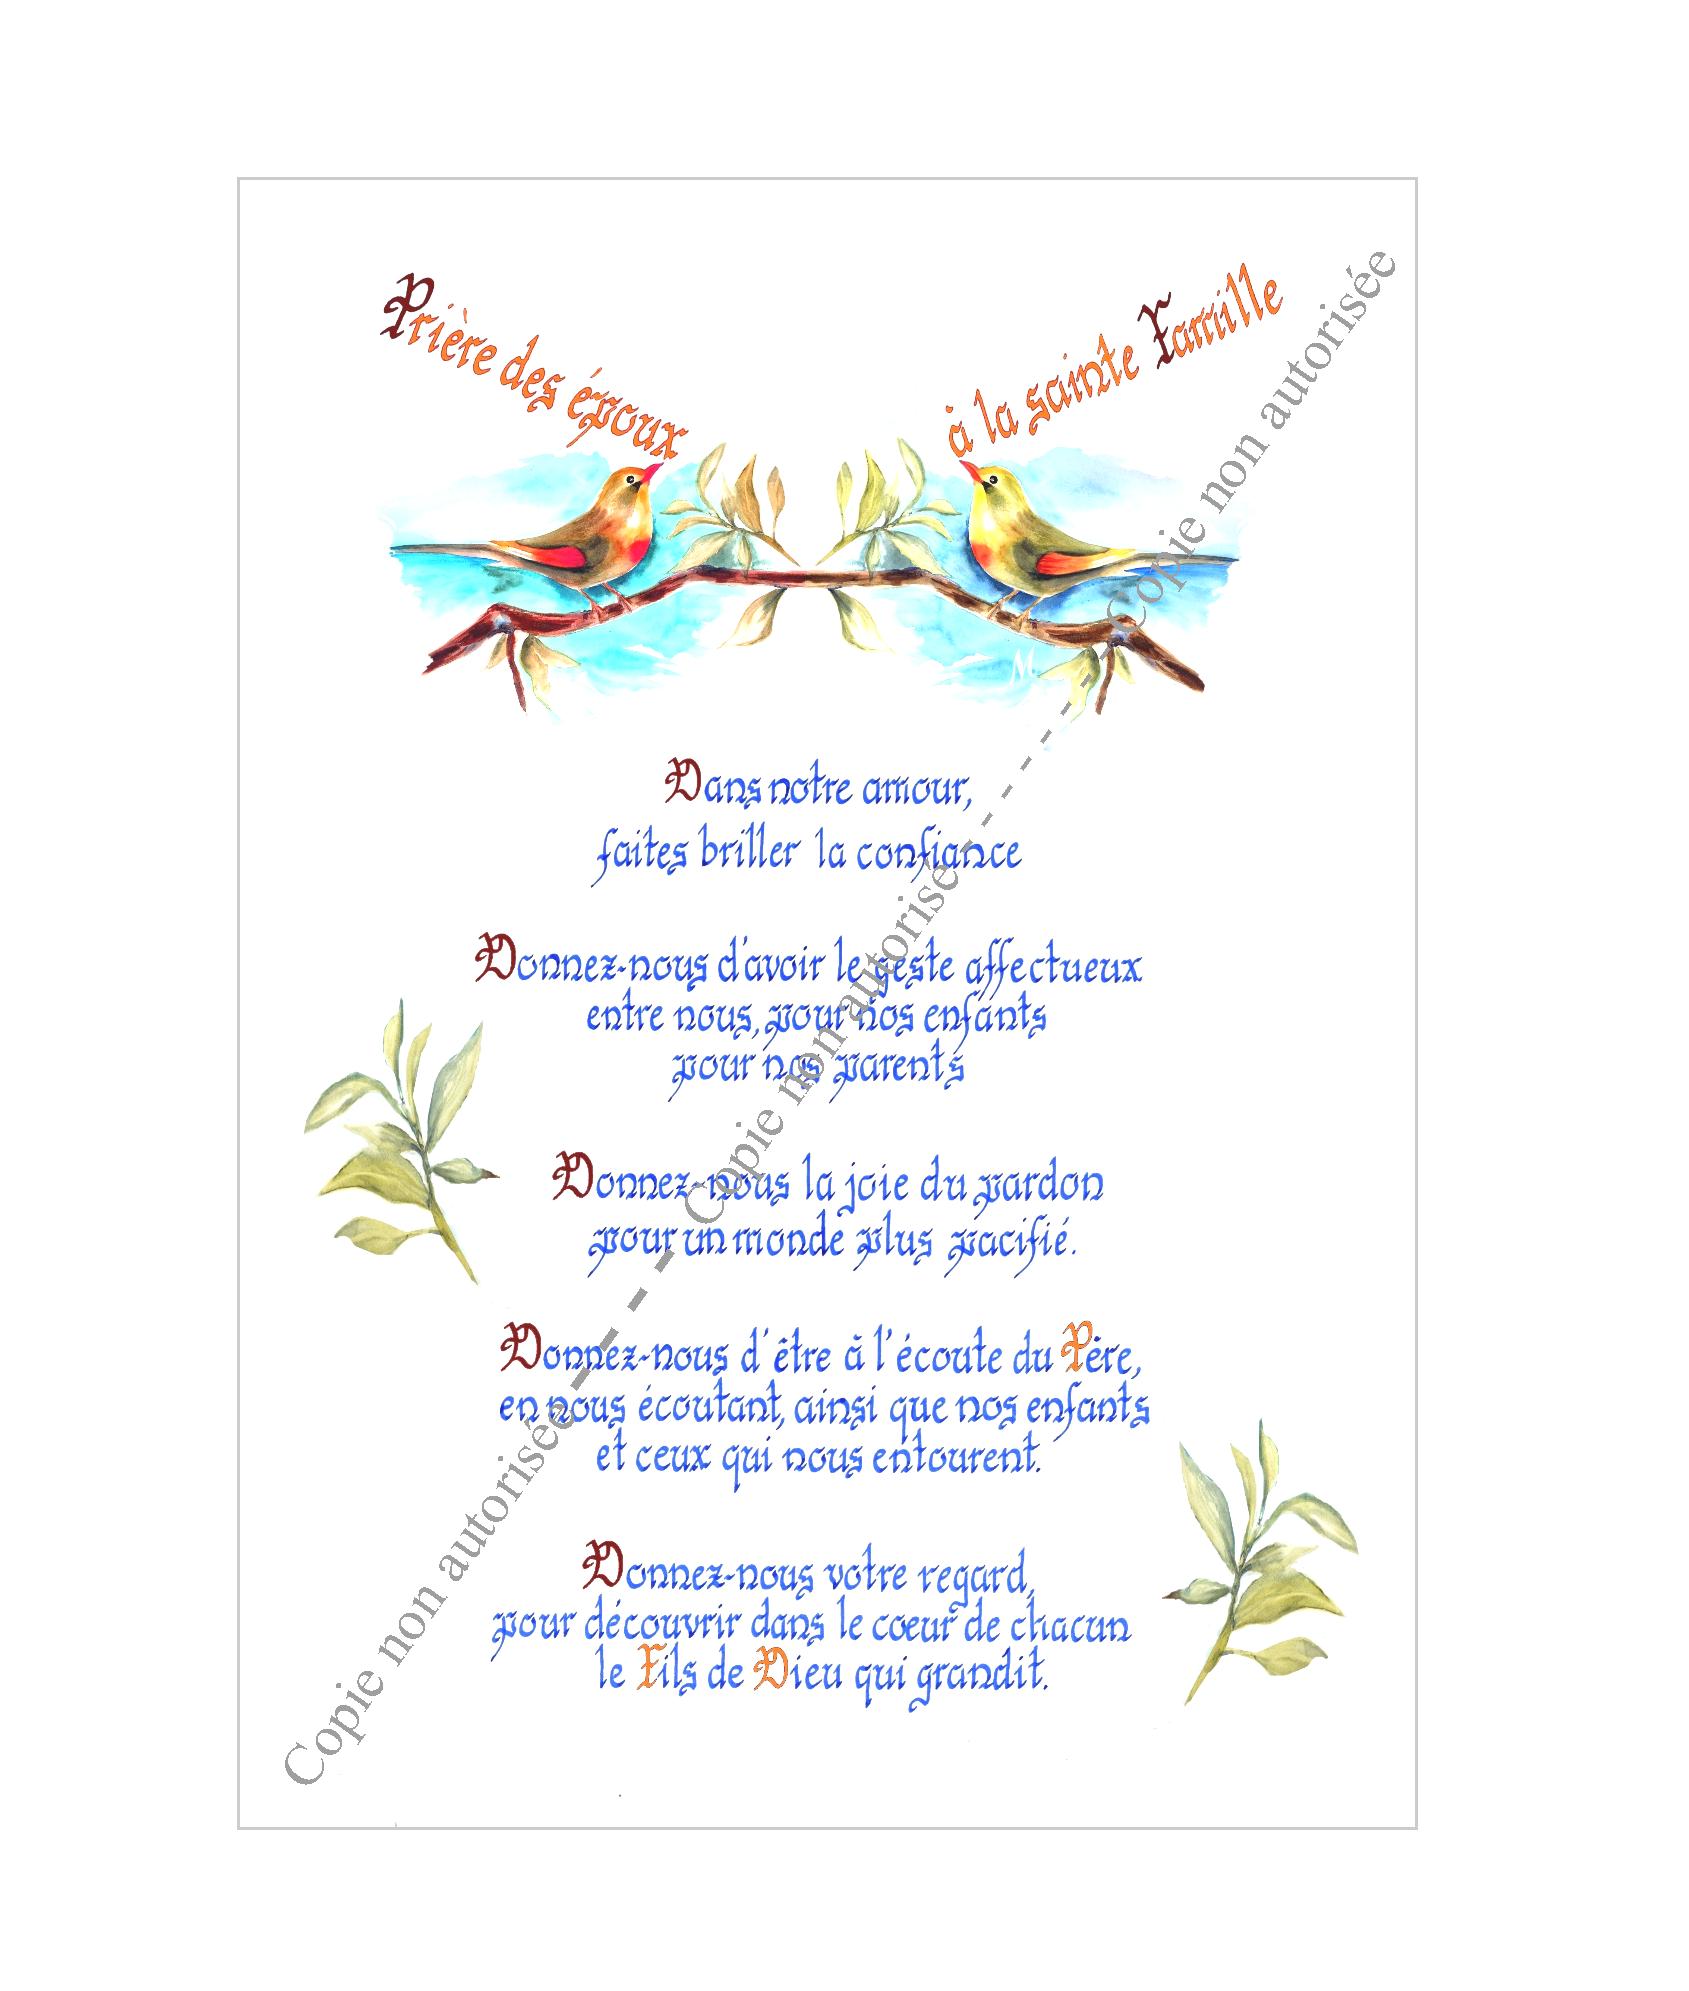 Prière des époux
à la sainte Famille
Dans notre amour,
faites briller la confiance
Donnez-nous d'avoir le geste affectueux
entre nous, pour nos enfants
pour nos parents
Donnez-nous la joie du pardon
pour un monde plus pacifié.
Donnez-nous d'être à l'écoute du Père,
en nous écoutant, ainsi que nos enfants
et ceux qui nous entourent.
Donnez-nous votre regard,
pour découvrir dans le coeur de chacun
le Fils de Dieu qui grandit.
Copie non autorisée - - - - - Copie non autorisée - - - - - - - - - Copie non autorisée
M